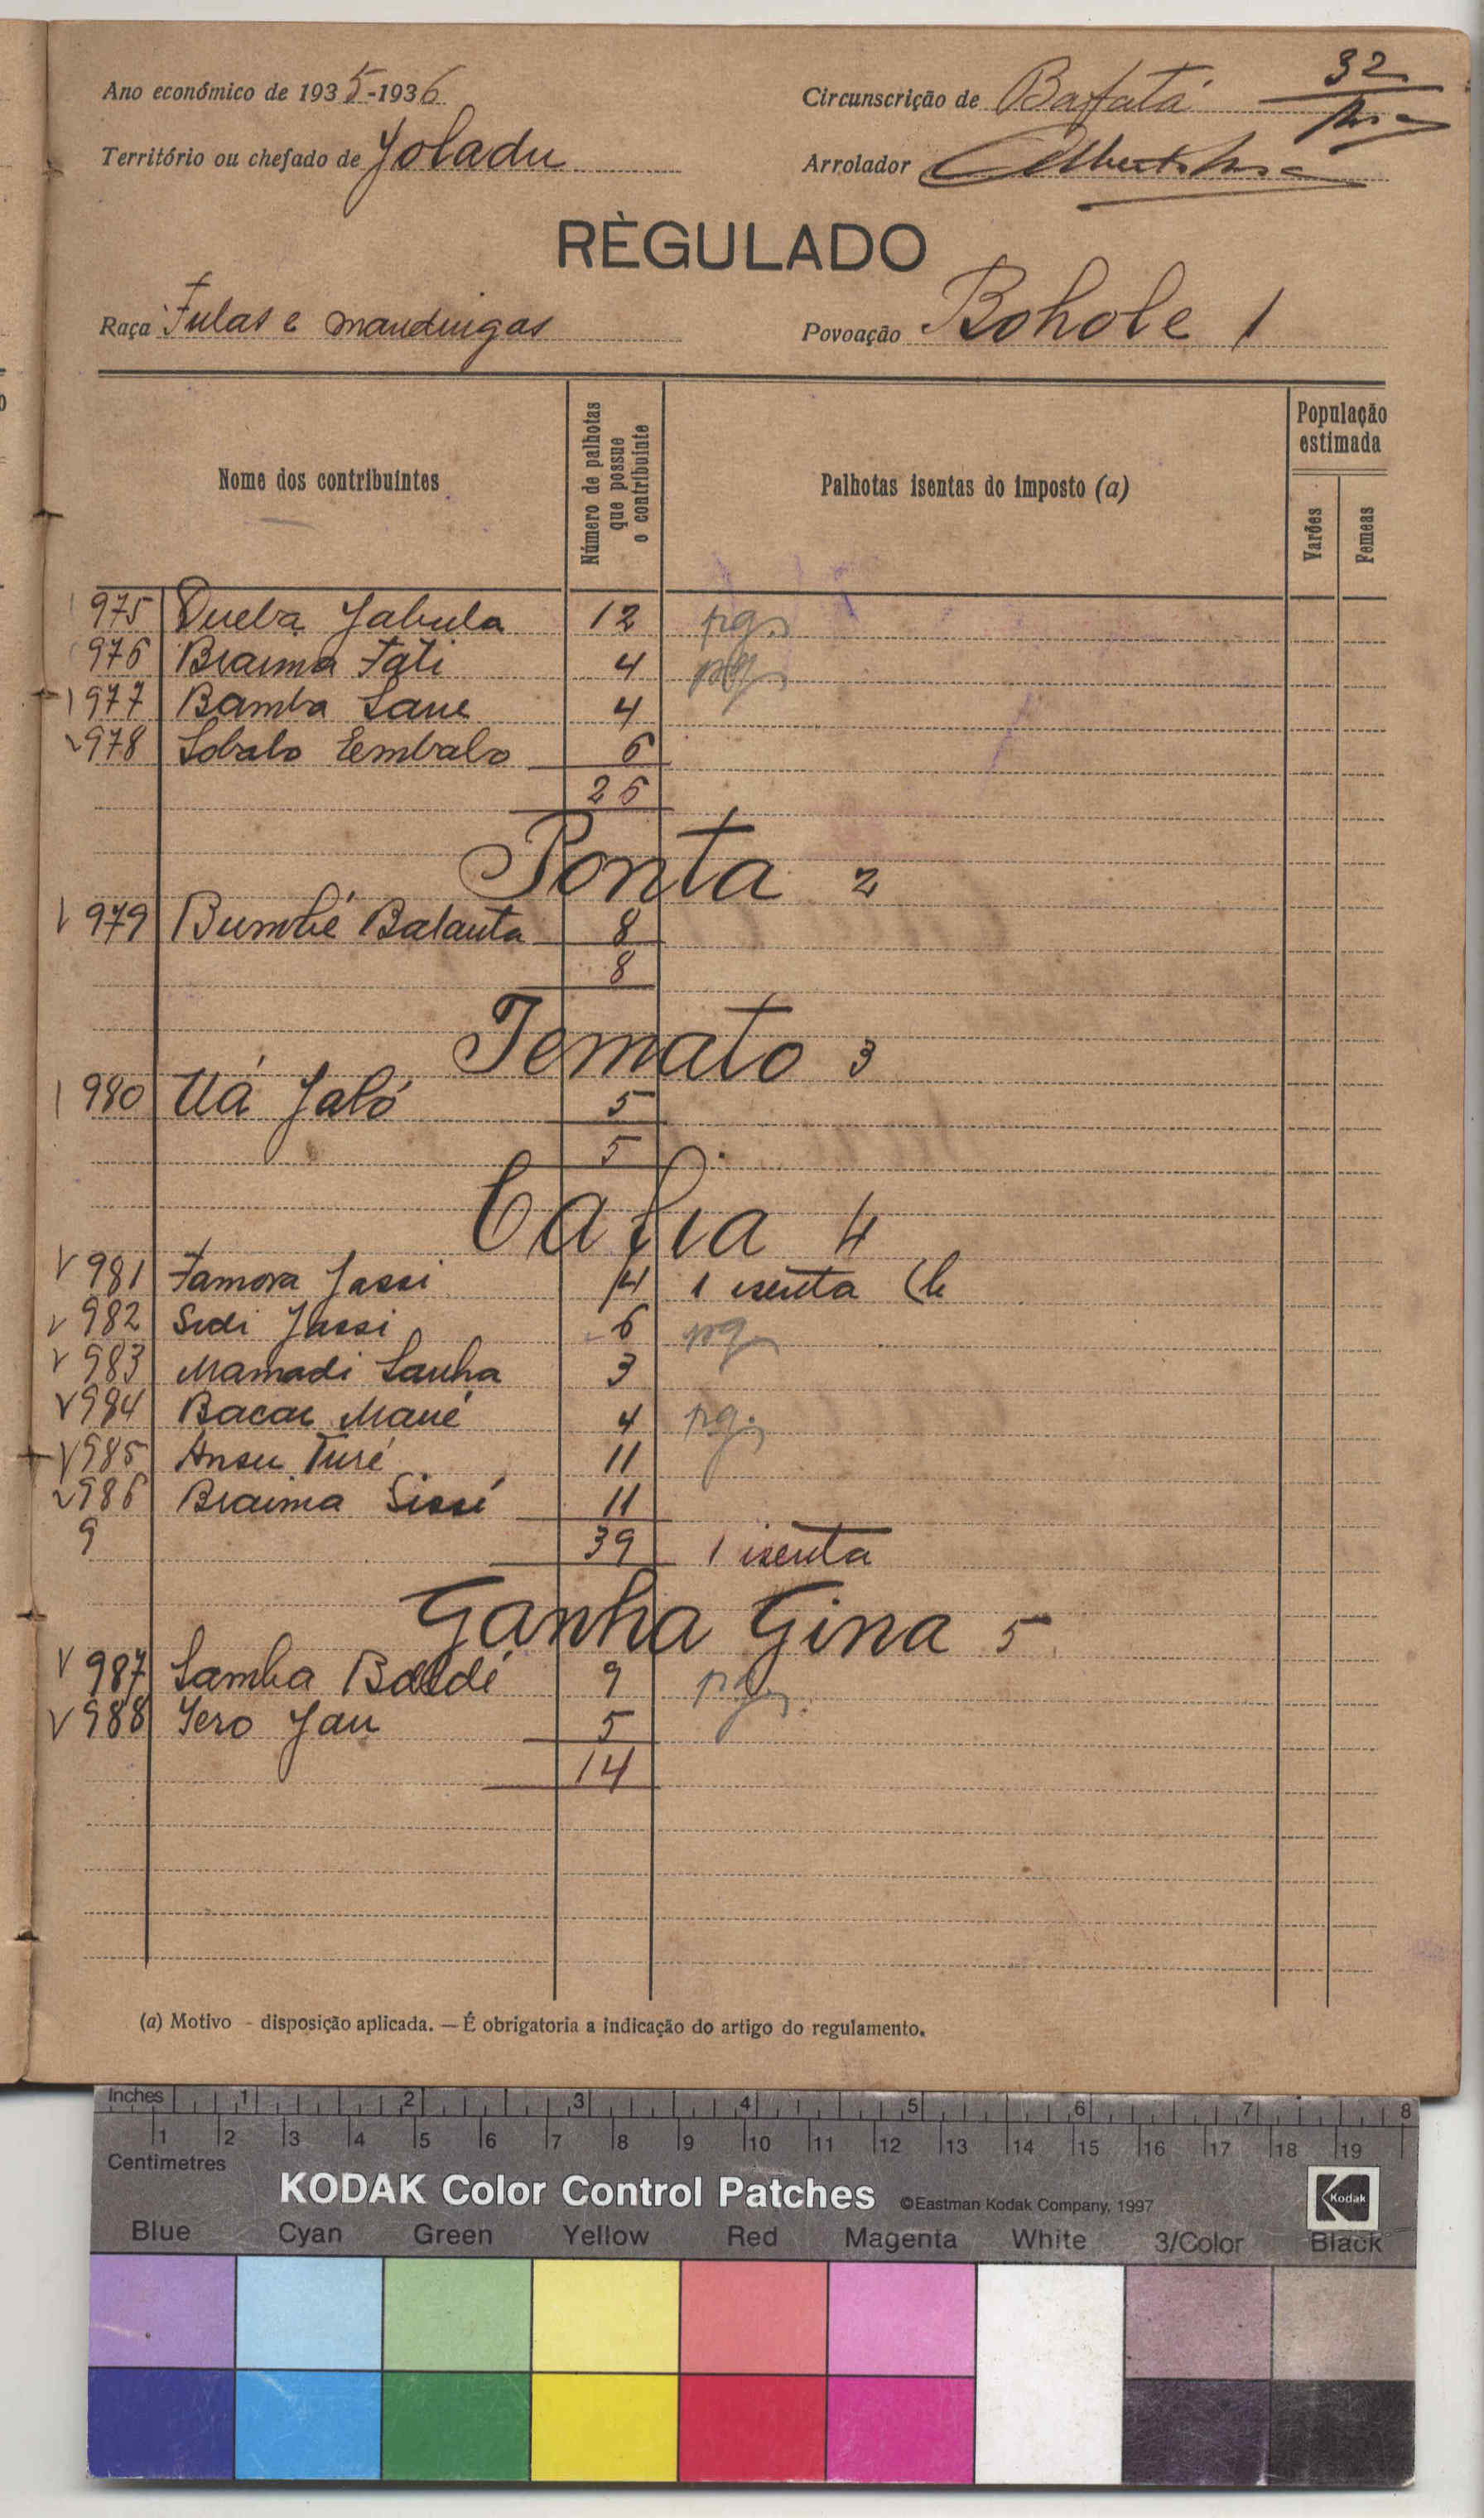 Ano económico de 1935-1936
Circunscrição de Bafatá
32
Território ou chefado de Joladu
Arrolador
RÈGULADO
Raça Fulas e mandingas
Povoação Bohole 1
Nome dos contribuintes
Número de palhotas que possue o contribuinte
Palhotas isentas do imposto (a)
População estimada
Varões
Femeas
975 Queba Jabula 12 pg.
976 Braima Fati 4 pg.
977 Bamba Sane 4
978 Sobalo Embalo 6
26
Ponta 2
979 Bumbé Balanta 8
8
Temato 3
980 Uá Jaló 5
5
Cafia 4
981 Famora Jassi 4 1 isenta (b
982 Sidi Jassi 6 pg
983 Mamadi Sanha 3
984 Bacar Mané 4 pg.
985 Ansu Turé 11
986 Braima Sissé 11
9 39 1 isenta
Ganha Gina 5
987 Samba Baldé 9 pg.
988 Iero Jau 5
14
(a) Motivo - disposição aplicada. — É obrigatoria a indicação do artigo do regulamento.
Inches 1 2 3 4 5 6 7 8
1 2 3 4 5 6 7 8 9 10 11 12 13 14 15 16 17 18 19
Centimetres
KODAK Color Control Patches ©Eastman Kodak Company, 1997 Kodak
Blue Cyan Green Yellow Red Magenta White 3/Color Black